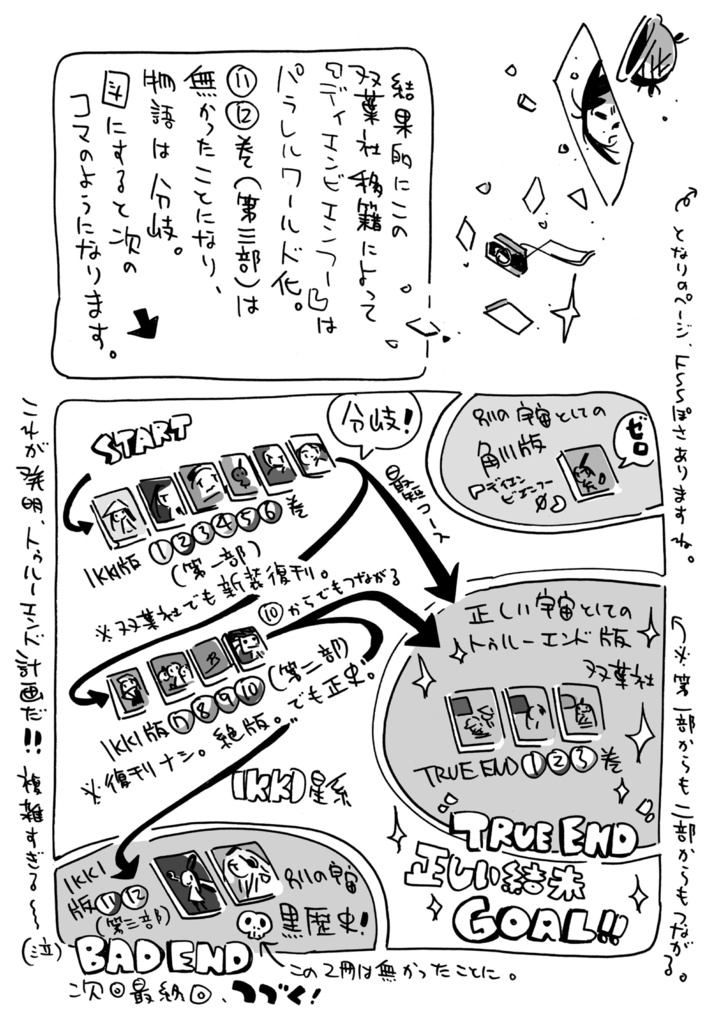 結果的にこの
双葉社移籍によって
『アディエンビエンフー』は
パラレルワールド化。
⑪⑫巻（第三部）は
無かったことになり、
物語は分岐。
図にすると次の
コマのようになります。
となりのページ、トンパぽさありますね。
START
分岐！
IKKI版①②③④⑤⑥巻
（第一部）
※双葉社でも新装復刊。
最短コース
⑩からでもつながる
IKKI版⑦⑧⑨⑩（第二部）
※復刊ナシ。絶版。でも正史。
IKKI星系
別の宇宙としての
角川版
アディエン
ビエンフー
ゼロ
正しい宇宙としての
トゥルーエンド版
双葉社
TRUE END①②③巻
TRUE END
正しい結末
GOAL!!
※第一部からも二部からもつながる。
IKKI
版⑪⑫
（第三部）
別の宇宙
黒歴史！
BAD END
この2冊は無かったことに。
これが発明、トゥルーエンド計画だ!!複雑すぎる〜（泣）
次回最終回、つづく！